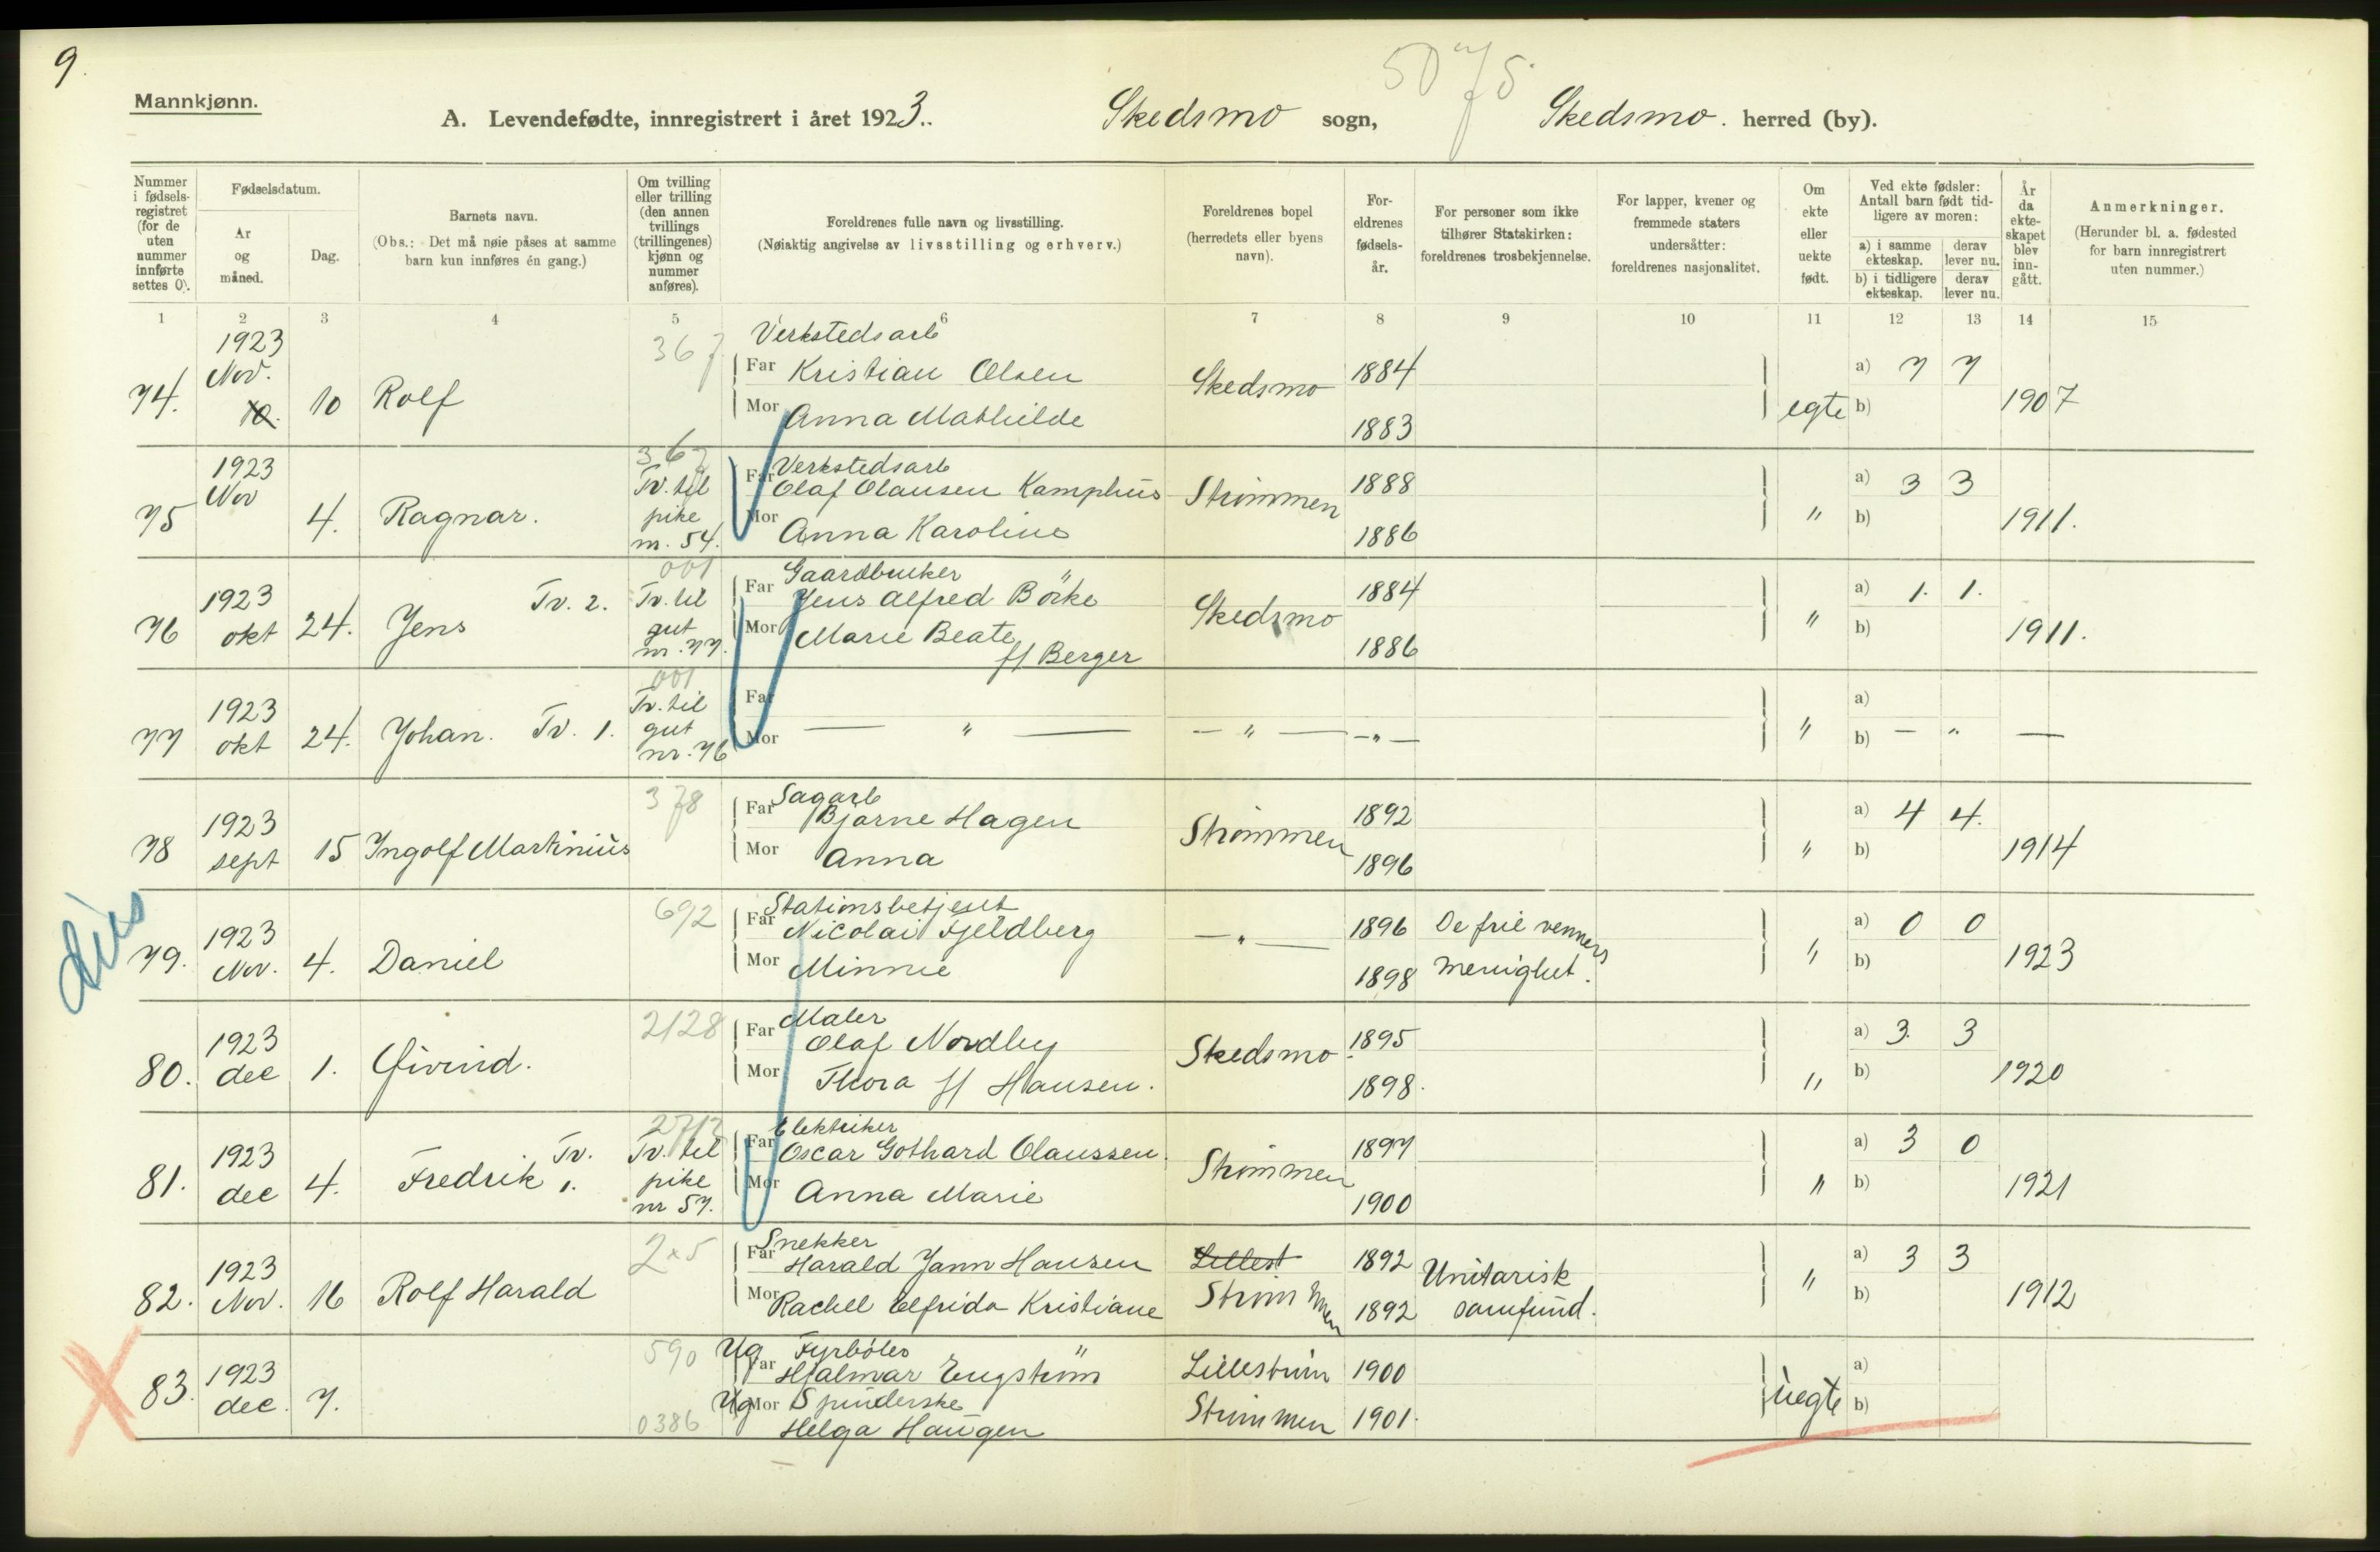 9.
Mannkjønn.
A. Levendefødte, innregistrert i året 1923. Skedsmo sogn, Skedsmo. herred (by).
5075
Nummer i fødselsregistret (for de uten nummer innførte settes 0).
Fødselsdatum.
År og måned.
Dag.
Barnets navn.
(Obs.: Det må nøie påses at samme barn kun innføres én gang.)
Om tvilling eller trilling (den annen tvillings (trillingenes) kjønn og nummer anføres).
Foreldrenes fulle navn og livsstilling.
(Nøiaktig angivelse av livsstilling og erhverv.)
Foreldrenes bopel (herredets eller byens navn).
Foreldrenes fødselsår.
For personer som ikke tilhører Statskirken: foreldrenes trosbekjennelse.
For lapper, kvener og fremmede staters undersåtter: foreldrenes nasjonalitet.
Om ekte eller uekte født.
Ved ekte fødsler: Antall barn født tidligere av moren:
a) i samme ekteskap. derav lever nu.
b) i tidligere ekteskap. derav lever nu.
År da ekteskapet blev inngått.
Anmerkninger.
(Herunder bl. a. fødested for barn innregistrert uten nummer.)
1 2 3 4 5 6 7 8 9 10 11 12 13 14 15
1923 367 Verkstedsarb
Nov. Far Kristian Olsen 1884 a) 7 7
74. 10. 10 Rolf Skedsmo egte b) 1907
Mor Anna Mathilde 1883
1923 367 Verkstedsarb
Nov Tv. til Far Olaf Olausen Kamphus Strømmen 1888 a) 3 3
75 4. Ragnar. pike " b) 1911.
nr. 54. Mor Anna Karoline 1886
001 Gaardbruker
1923 Tv. 2. Tv. til Far Jens Alfred Börke 1884 a) 1. 1.
76 okt 24. Jens gut Mor Marie Beate Skedsmo " b) 1911.
nr. 77. f/ Berger 1886
001
1923 Tv. til Far a)
77 okt 24. Johan. Tv. 1. gut Mor — " — — " — — " — " b) — " —
nr. 76
378 Sagarb
1923 Far Bjarne Hagen 1892 a) 4 4.
78 sept 15 Ingolf Martinius Mor Anna Strømmen 1896 " b) 1914
692 Stationsbetjent
1923 Far Nicolai Fjeldberg — " — 1896 De frie venners a) 0 0
79. Nov. 4. Daniel Mor Minnie 1898 menighet. " b) 1923
2128 Maler
1923 Far Olaf Nordby 1895 a) 3. 3
80. dec 1. Øivind. Mor Thora f/ Hansen. Skedsmo 1898. " b) 1920
Elektriker
1923 Tv. Tv. til Far Oscar Gothard Olaussen. 1897 a) 3 0
81. dec 4. Fredrik 1. pike Mor Anna Marie Strømmen 1900 " b) 1921
nr 57.
2x5 Snekker
1923 Far Harald Jann Hansen Lillest 1892 Unitarisk a) 3 3
82. Nov. 16 Rolf Harald Mor Rachel Elfrida Kristiane Strømmen 1892 samfund. " b) 1912
590 Ug Fyrböter
1923 Far Hjalmar Engström Lillestrøm 1900 a)
83. dec. 7. Ug Mor Spinderske Strømmen 1901. uegte b)
0386 Helga Haugen